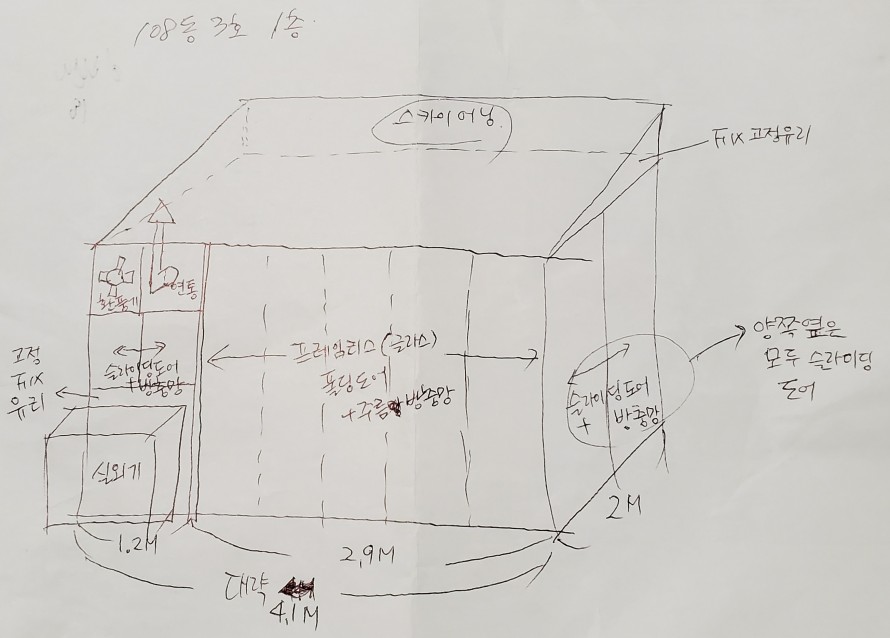 108동 3호 1층
스카이어닝
FIX 고정유리
환풍기
연통
고정
FIX
유리
슬라이딩도어
+방충망
프레임리스(글라스)
폴딩도어
+주름방충망
양쪽옆은
모두 슬라이딩
도어
슬라이딩도어
+ 방충망
실외기
1.2M
2,9M
2M
대략
4,1M